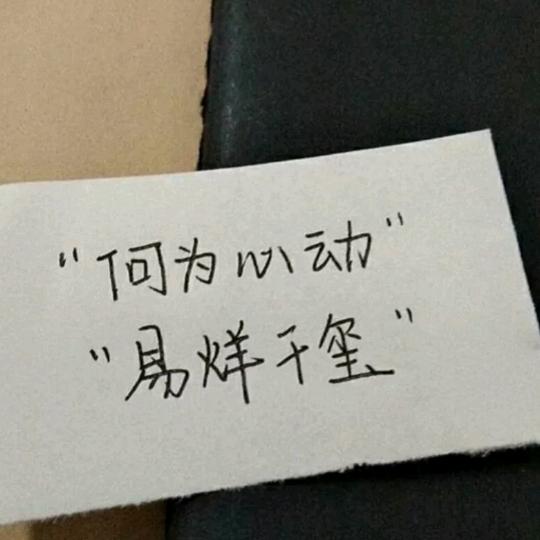 "何为心动"
"易烊千玺"